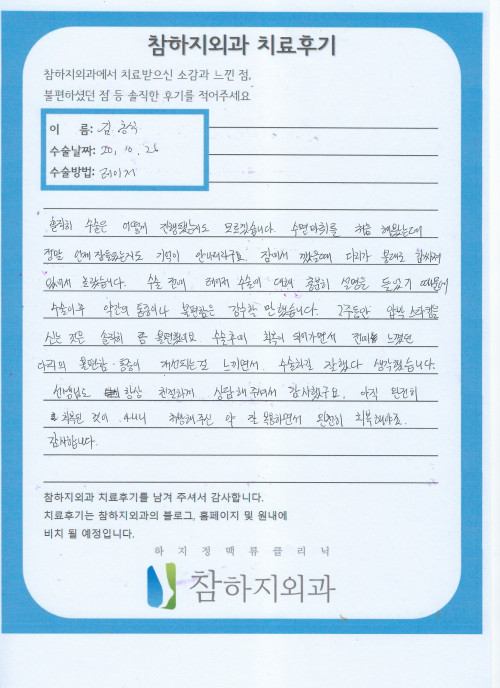 참하지외과 치료후기
참하지외과에서 치료받으신 소감과 느낀 점,
불편하셨던 점 등 솔직한 후기를 적어주세요
이 름: 김
수술날짜: 20. 10. 26
수술방법: 레이저
솔직히 수술은 어떻게 진행됐는지도 모르겠습니다. 수면마취를 처음 해봤는데
정말 언제 잠들었는지도 기억이 안나더라구요. 잠에서 깼을때 다리가 붕대로
있어서 놀랐습니다. 수술 전에 레이저 수술에 대해 충분히 설명을 들었기 때문에
수술이후 약간의 통증이나 불편함은 감수할 만했습니다. 2주동안 압박 스타킹을
신는 것은 솔직히 좀 불편했네요. 수술부위 회복이 되어가면서 전에 느꼈던
다리의 불편함·통증이 개선되는걸 느끼면서, 수술하길 잘했다 생각했습니다.
선생님도 항상 친절하게 상담해 주셔서 감사했구요, 아직 완전히
회복된 것이 아니니 처방해주신 약 잘 복용하면서 완전히 회복해야죠.
감사합니다.
참하지외과 치료후기를 남겨 주셔서 감사합니다.
치료후기는 참하지외과의 블로그, 홈페이지 및 원내에
비치 될 예정입니다.
하지정맥류클리닉
참하지외과